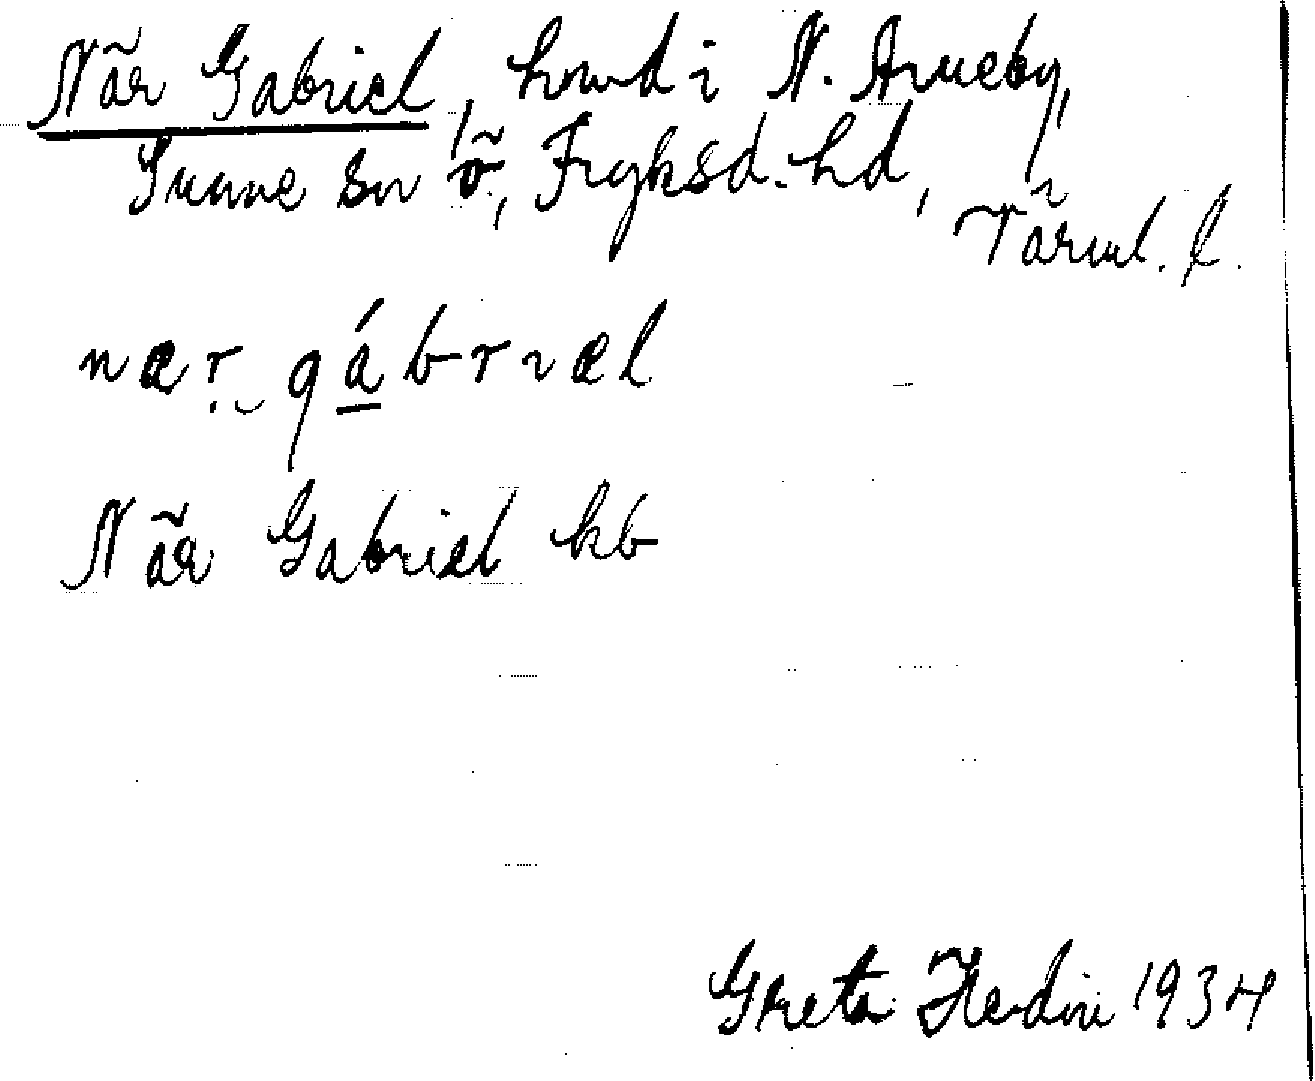 När Gabriel, hmd i N. Årneby,
Sunne sn ö, Fryksd. hd, Värml. l.
nær gábrıæl
När Gabriel kb
Greta Hedin 1934